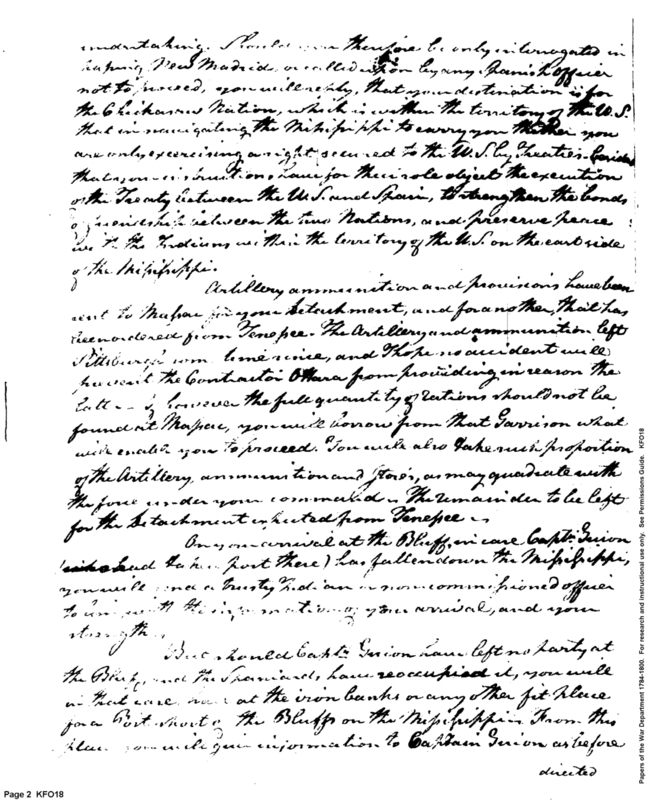 undertaking. Should you therefore be only interrogated in
passing New Madrid, or called upon by any Spanish officer
not to proceed, you will reply, that your destination is for
the Chickasaw Nation, which is within the territory of the U.S.
that in navigating the Missisippi to carry you thither you
are only exercising a right secured to the U.S. by Treaties
that your instructions have for their sole object the execution
of the Treaty between the U.S. and Spain, to strengthen the bonds
of friendship between the two Nations, and preserve peace
with the Indians within the territory of the U.S. on the east side
of the Missisippi.
Artillery ammunition and provisions have been
sent to Massac for your detachment, and for another, that has
been ordered from Tenessee. The Artillery and ammunition left
Pittsburgh some time since, and I hope no accident will
prevent the Contractor OHara from providing in season the
latter if however the full quantity of rations should not be
found at Massac, you will borrow from that Garrison what
will enable you to proceed. You will also take such proportion
of the Artillery, ammunition and stores, as may quadrate with
the force under your command. The remainder to be left
for the detachment expected from Tenessee
On your arrival at the Bluffs, in case Captn. Guion
(who had taken post there) has fallen down the Missisippi,
you will send a trusty Indian or noncommissioned officer
to him with the information of your arrival, and your
strength.
But should Captn. Guion have left no party at
the Bluffs, and the Spaniards have reoccupied it, you will
in that case, halt at the iron banks or any other fit place
for a Post short of the Bluffs on the Missisippi. From this
place you will give information to Captain Guion as before
directed
Page 2 KFO18
Papers of the War Department 1784-1800. For research and instructional use only. See Permissions Guide. KFO18